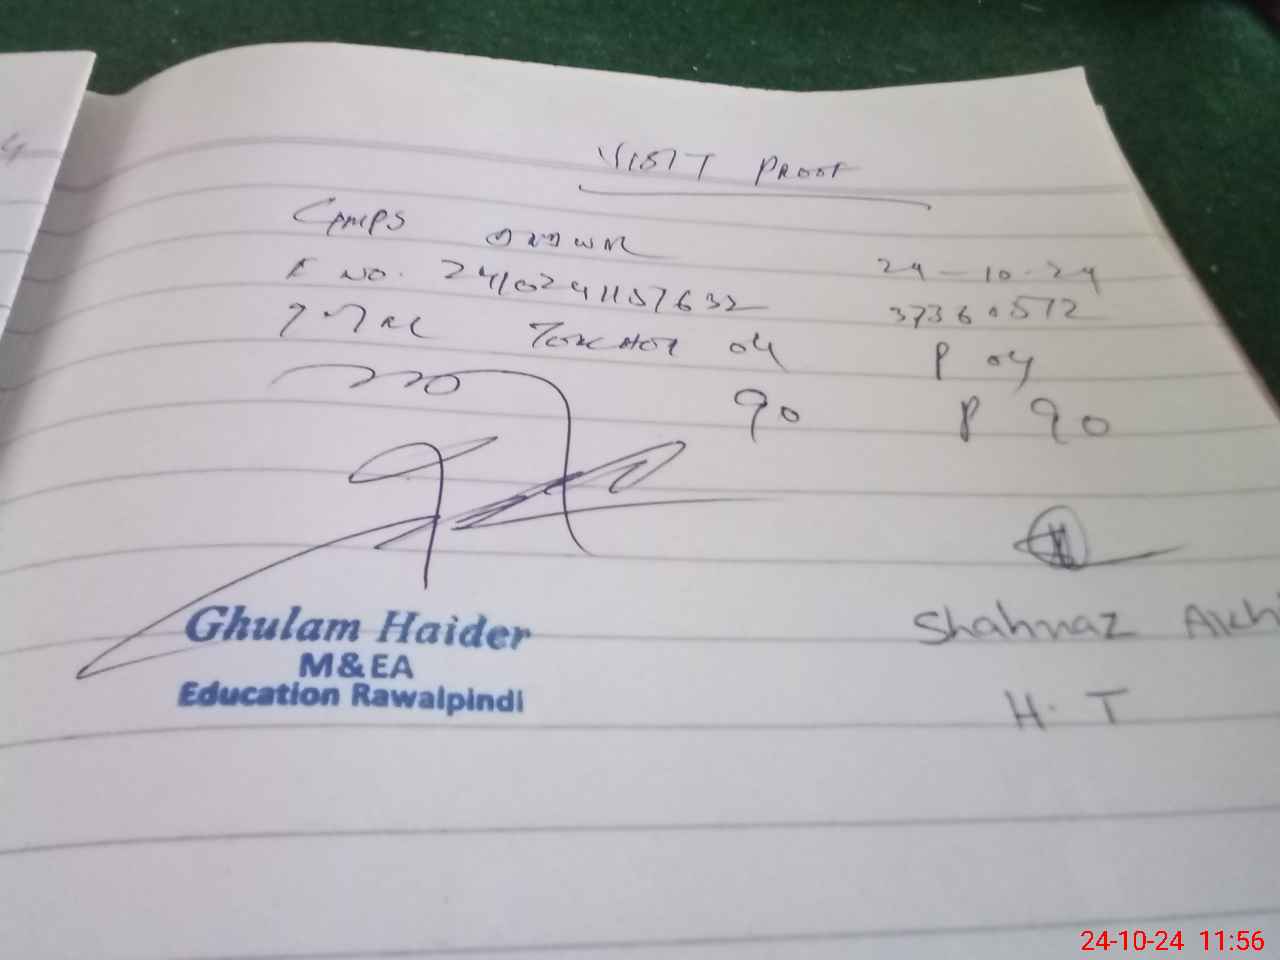 VISIT PROOF
CAMPS 24-10-24
F NO. 2410241157632 37360572
Teacher 04 P 04
90 P 90
Ghulam Haider
M&EA
Education Rawalpindi
Shahnaz Akh
H.T
24-10-24 11:56